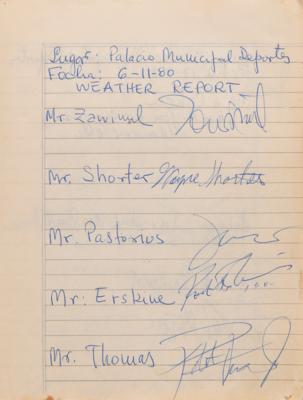 Lugar: Palacio Municipal Deportes
Fecha: 6-11-80
WEATHER REPORT
Mr Zawinul
Mr. Shorter Wayne Shorter
Mr. Pastorius
Mr. Erskine
Mr. Thomas